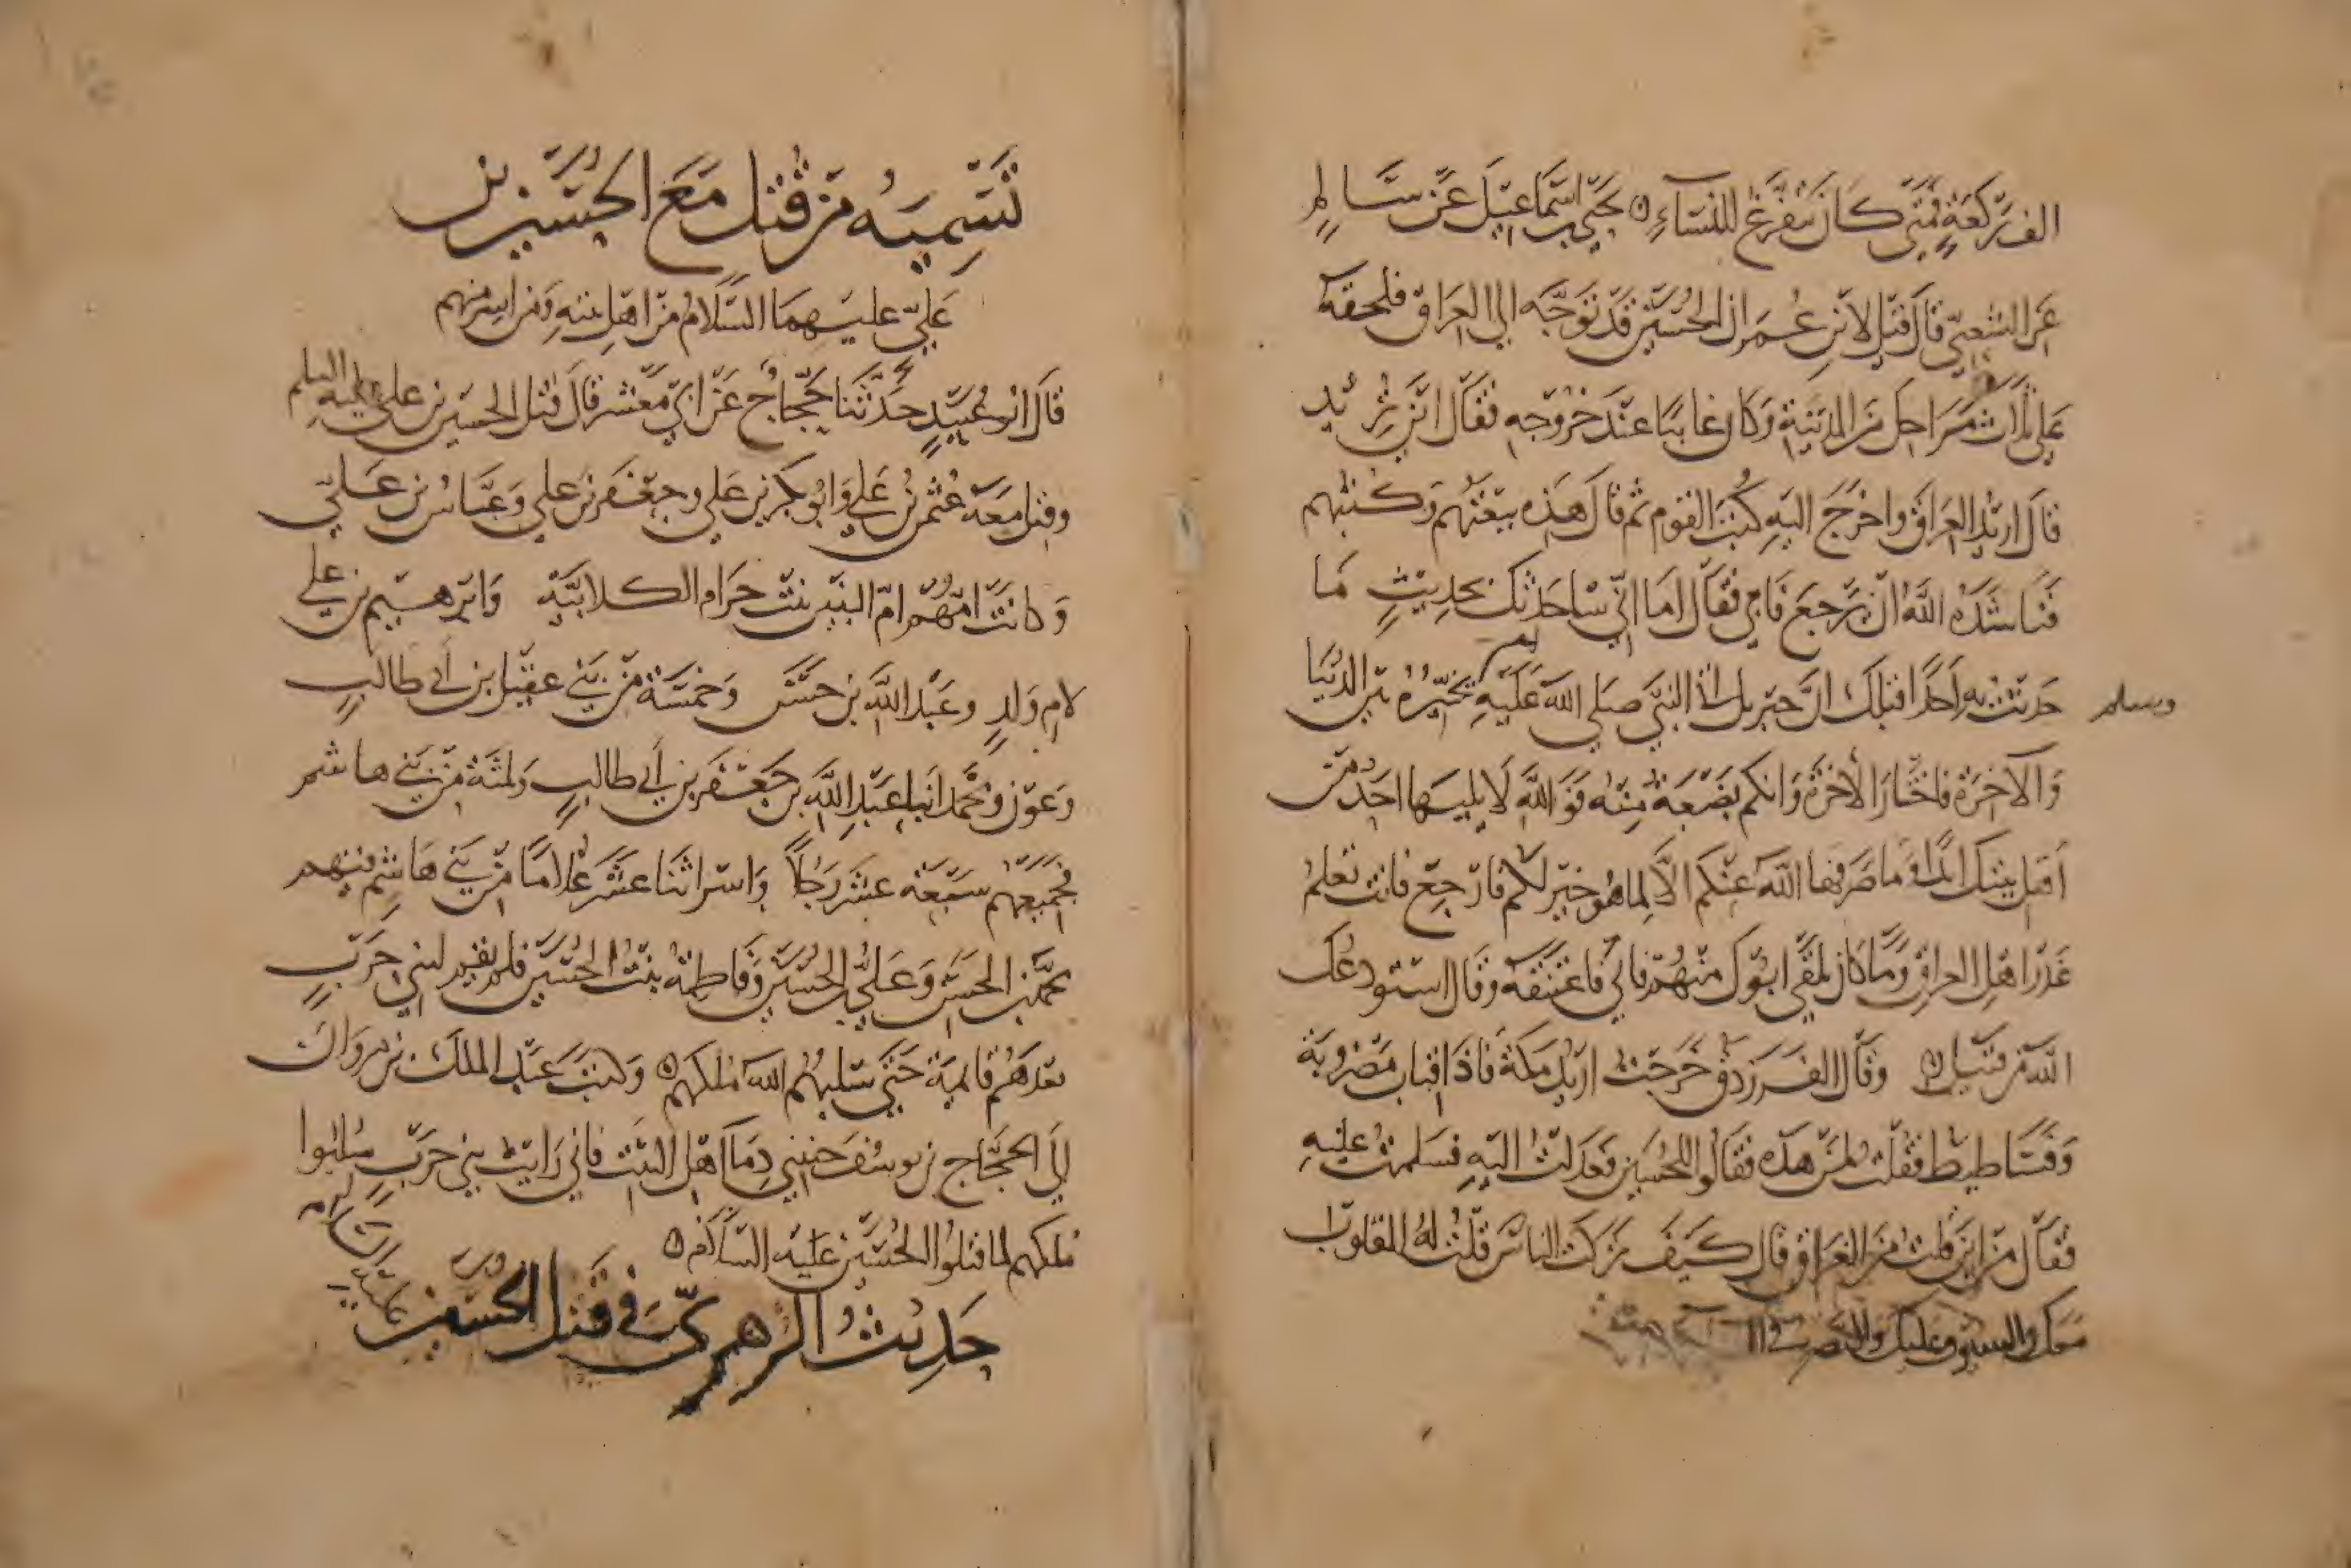 الف ركعة فمتى كان يتفرغ للنساء ۞ يحيى بن اسماعيل عن سالم
عن الشعبي قال قيل لابن عمر ان الحسين قد توجه الى العراق فلحقه
على ثلاث مراحل من المدينة وكان غائبا عند خروجه فقال اين تريد
قال اريد العراق واخرج اليه كتب القوم ثم قال هذه بيعتهم وكتبهم
فناشده الله ان يرجع فابى فقال اما اني ساحدثك بحديث ما
حدثت به احدا قبلك ان جبريل اتى النبي صلى الله عليه يخيره بين الدنيا
وسلم
والآخرة فاختار الأخرة وانكم بضعة منه فوالله لا يليها احد من
أهل بيتك ابدا وما صرفها الله عنكم الا لما هو خير لكم فارجع فانت تعلم
غدر اهل العراق وما كان يلقى ابوك منهم فابى فاعتنقه وقال استودعك
الله من قتيل ۞ وقال الفرزدق خرجت اريد مكة فاذا قباب مضروبة
وفساطيط فقلت لمن هذه فقالوا للحسين فعدلت اليه فسلمت عليه
فقال من اين قلت من العراق قال كيف تركت الناس قلت له القلوب
معك والسيوف عليك والنصر في
تسمية من قتل مع الحسين بن
علي عليهما السلام من اهل بيته ومن اسر منهم
قال ابو عبيد حدثنا حجاج عن ابي معشر قال قتل الحسين بن علي عليه السلم
وقتل معه عثمن بن علي وابو بكر بن علي وجعفر بن علي وعباس بن علي
وكانت امهم ام البنين بنت حرام الكلابية وابرهيم بن علي
لام ولد وعبد الله بن حسن وخمسة من بني عقيل بن أبي طالب
وعون ومحمد ابنا عبد الله بن جعفر بن أبي طالب وثلثة من بني هاشم
فجميعهم سبعة عشر رجلا واسر اثنا عشر غلاما من بني هاشم فيهم
محمد بن الحسن وعلي بن الحسين وفاطمة بنت الحسين فلم تقم لبني حرب
بعدهم قائمة حتى سلبهم الله ملكهم ۞ وكتب عبد الملك بن مروان
الى الحجاج بن يوسف جنبني دما اهل البيت فاني رايت بني حرب سلبوا
ملكهم لما قتلوا الحسين عليه السلام ۞
حديث الزهري في قتل الحسين